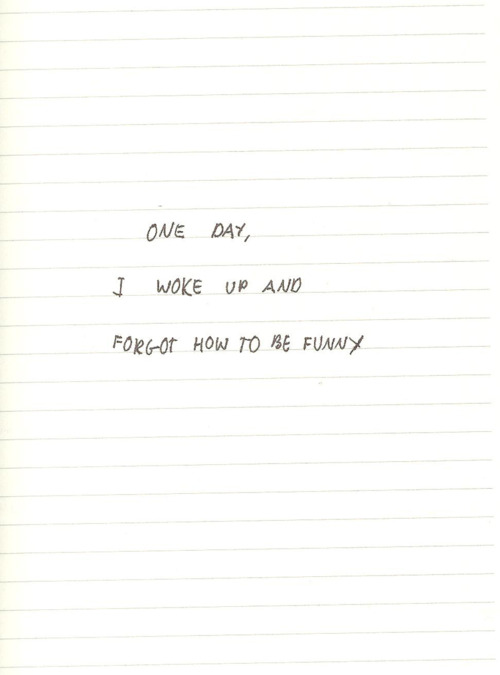 ONE DAY,
I WOKE UP AND
FORGOT HOW TO BE FUNNY